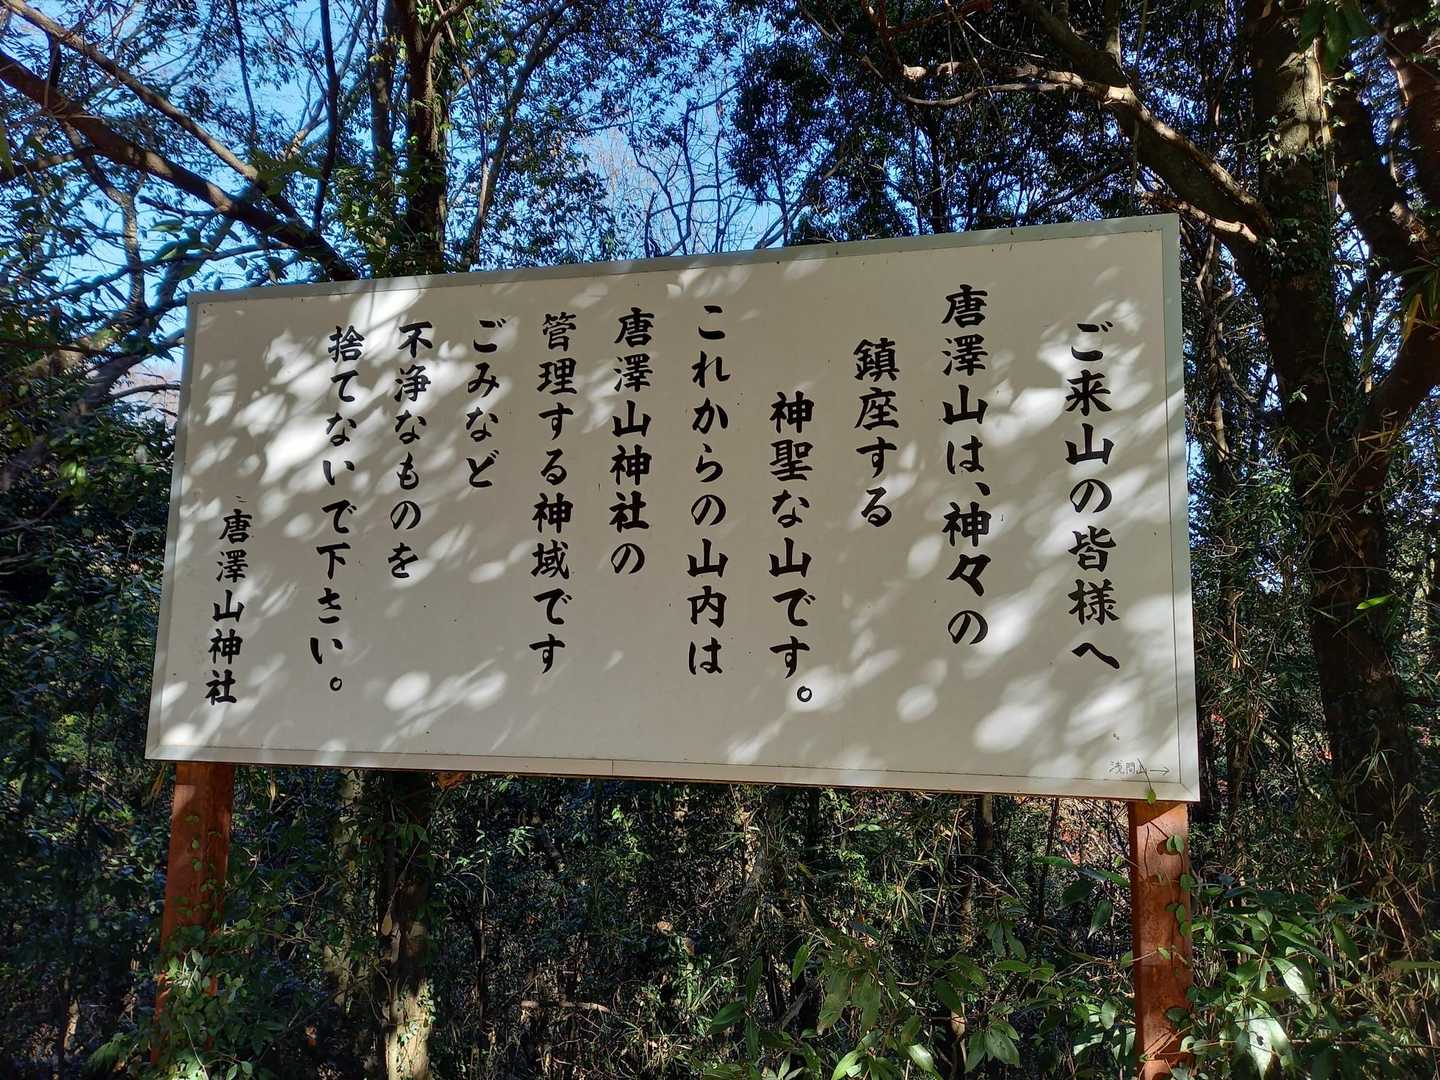 ご来山の皆様へ
唐澤山は、神々の
鎮座する
神聖な山です。
これからの山内は
唐澤山神社の
管理する神域です
ごみなど
不浄なものを
捨てないで下さい。
唐澤山神社
浅間山→